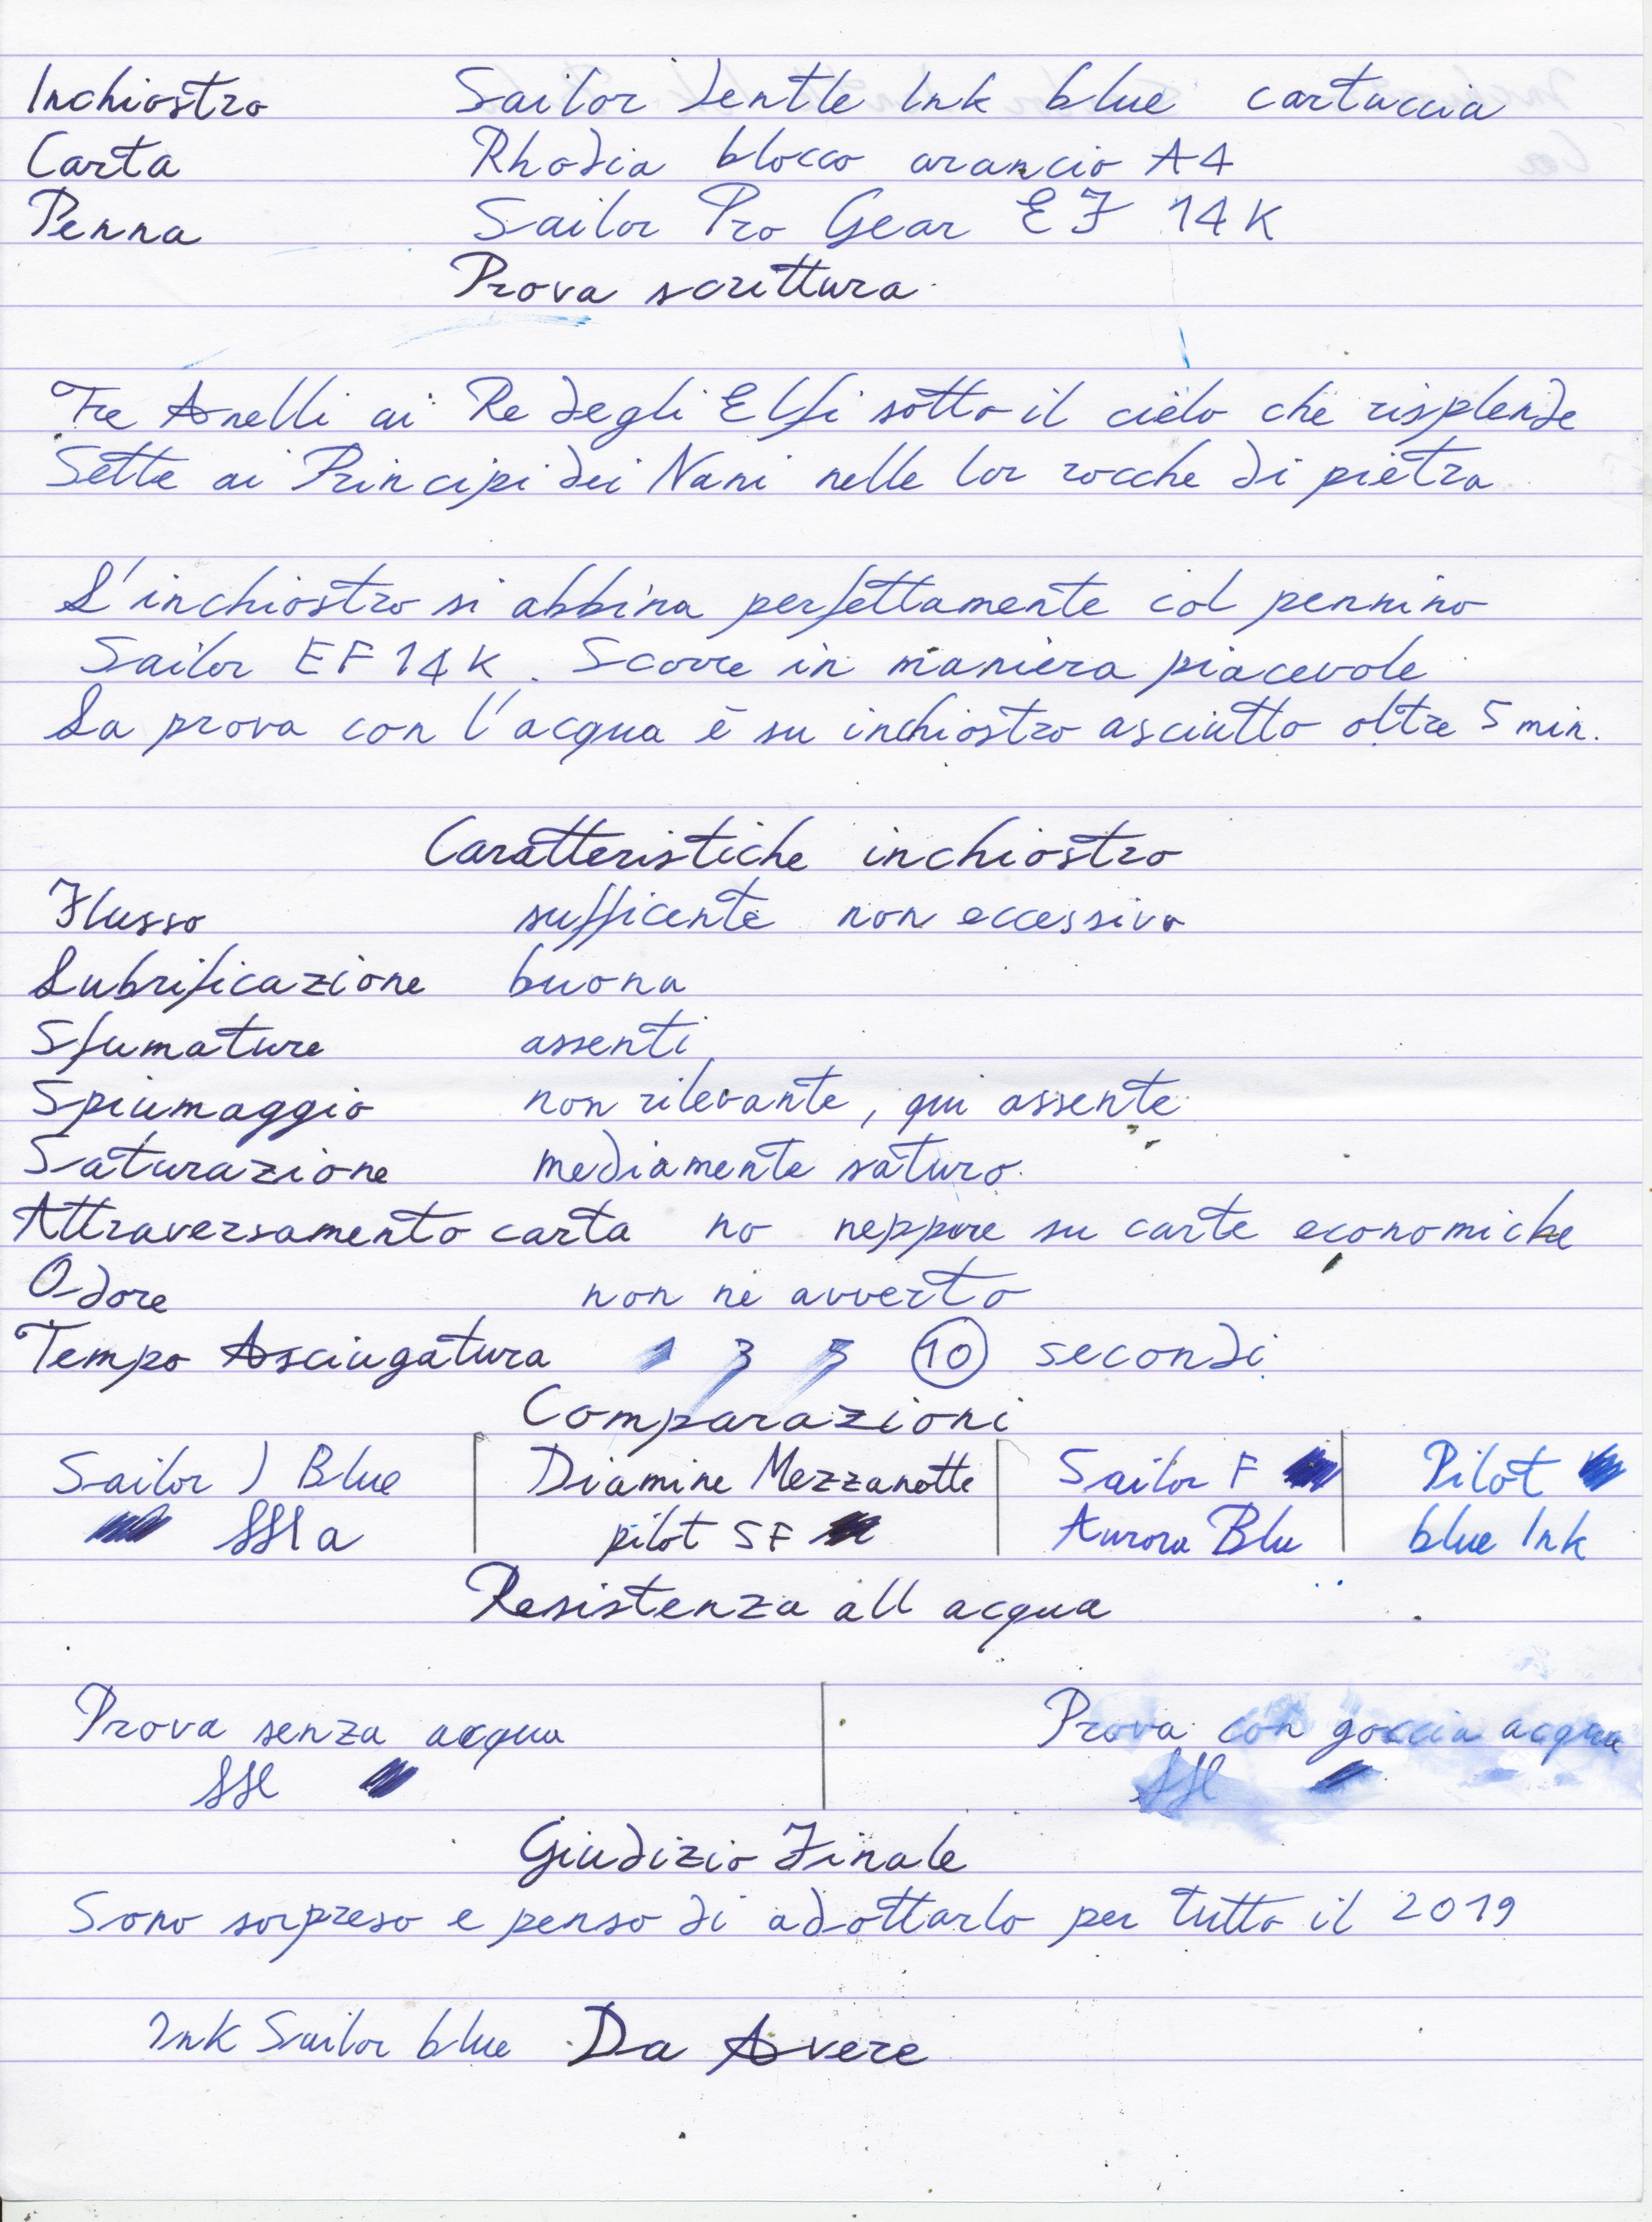 Inchiostro Sailor Jentle Ink blue cartuccia
Carta Rhodia blocco arancio A4
Penna Sailor Pro Gear EF 14K
Prova scrittura
Tre Anelli ai Re degli Elfi sotto il cielo che risplende
Sette ai Principi dei Nani nelle lor rocche di pietra
L'inchiostro si abbina perfettamente col pennino
Sailor EF 14K. Scorre in maniera piacevole
La prova con l'acqua è su inchiostro asciutto oltre 5 min.
Caratteristiche inchiostro
Flusso sufficente non eccessivo
Lubrificazione buona
Sfumature assenti
Spiumaggio non rilevante, qui assente
Saturazione mediamente saturo
Attraversamento carta no neppure su carte economiche
Odore non ne avverto
Tempo Asciugatura 1 3 5 10 secondi
Comparazioni
Sailor J Blue Diamine Mezzanotte Sailor F Pilot
pilot SF Aurora Blu blue Ink
Resistenza all acqua
Prova senza acqua Prova con goccia acqua
Giudizio Finale
Sono sorpreso e penso di adottarlo per tutto il 2019
Ink Sailor blue Da Avere